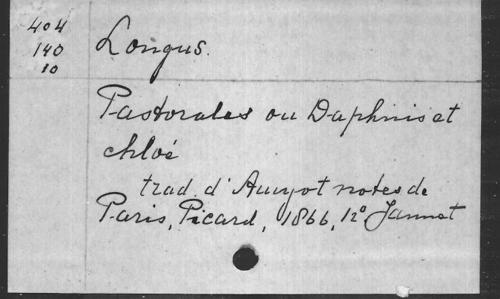 404
140
10
Longus.
Pastorales ou Daphnis et
chloé
trad. d'Amyot notes de
Paris, Picard, 1866, 12º Jannet